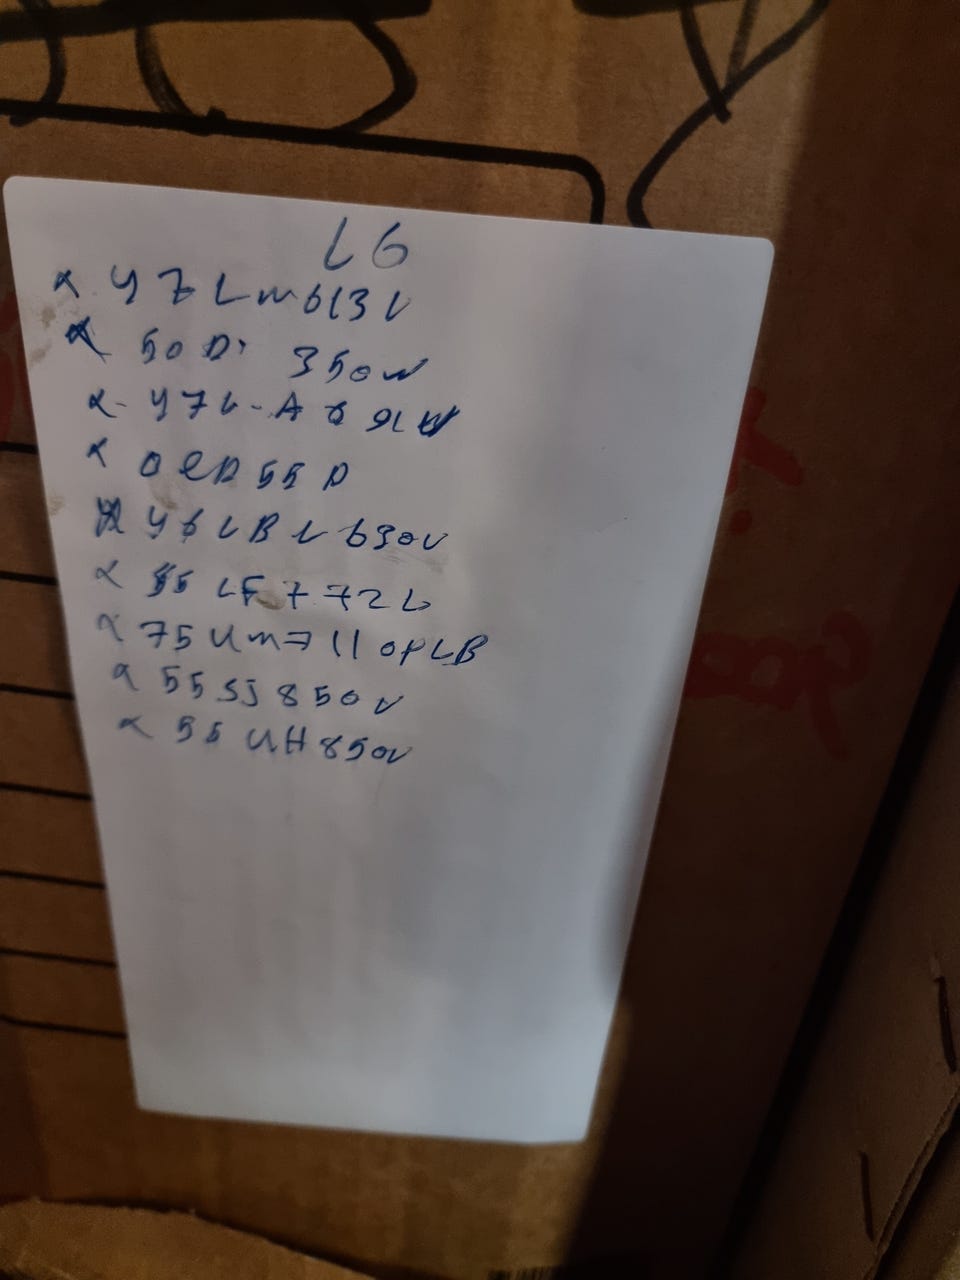 LG
47Lm613V
50P. 350N
47L-A691W
OLED55D
46LBL630V
55LF772V
75UM7110PLB
55SJ850V
55UH850V